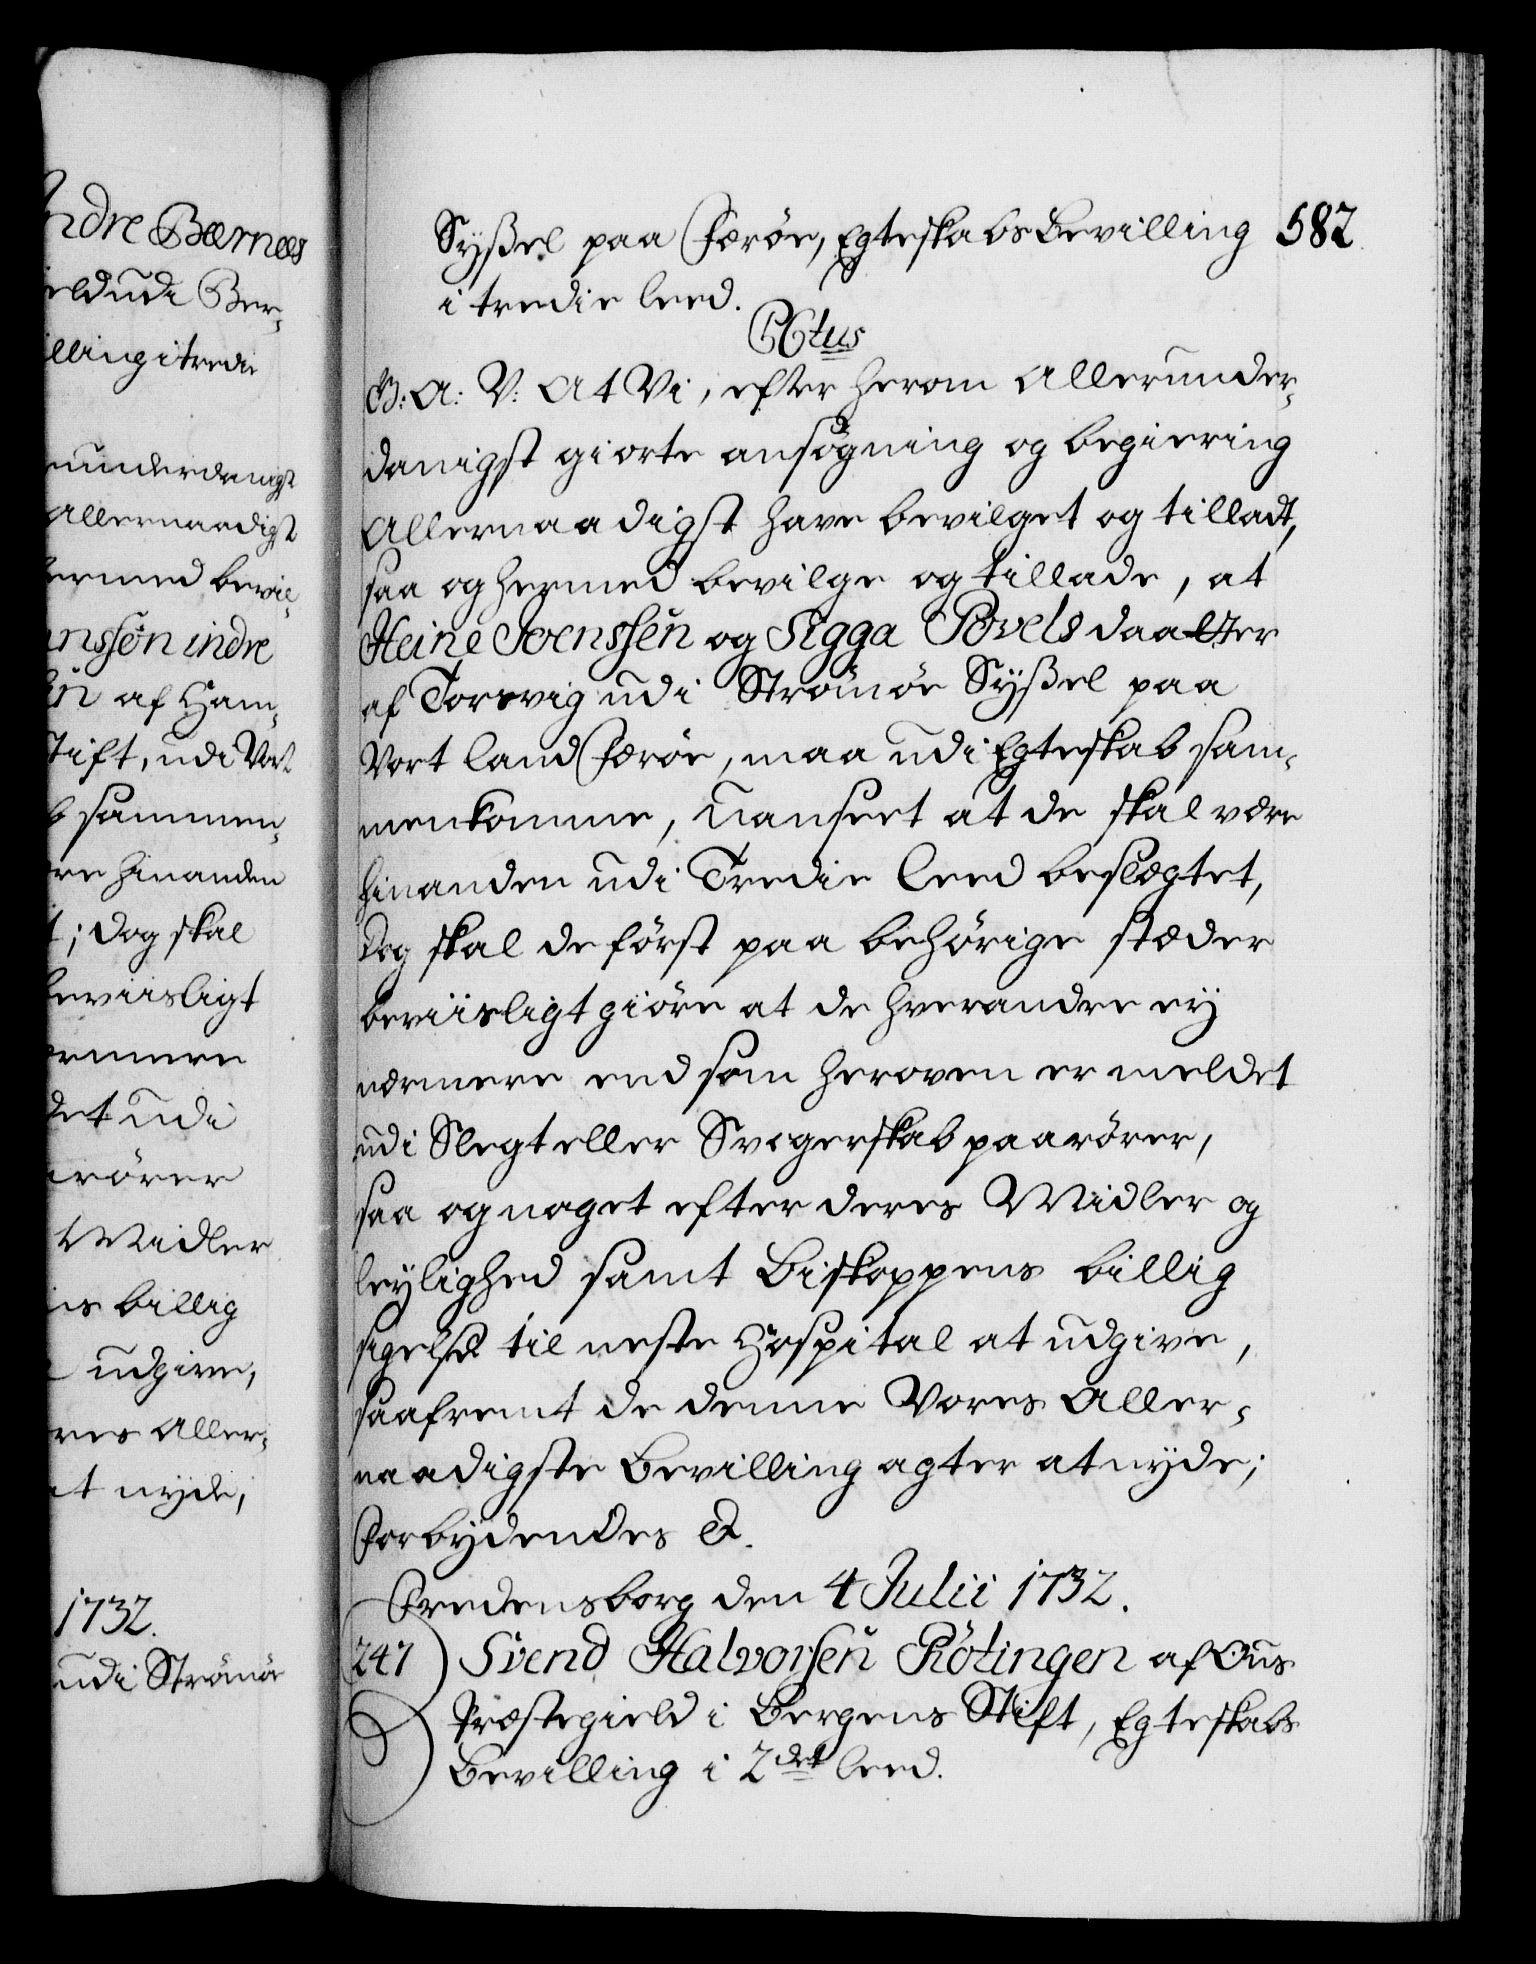 ndre Bærnæs
ield udi Ber-
illing i tredie
runderdanigst
allernaadigst
hermed bevil-
anssøn indre
af Ham-
Stift, udi Vort
b sammen-
re hinanden
t; dog skal
beviisligt
ermere
det udi
arörer
Midler
ns billig
udgive,
res Aller-
at nyde,
1732.
udi Strömöe
Syßel paa Færöe, Egteskabs Bevilling 582
i tredie leed.
CCtus
G: A: V: At Vi, efter herom allerunder-
danigst giorte ansøgning og begiering
Allernaadigst have bevilget og tilladt,
saa og hermed bevilge og tillade, at
Heine Svenssen og Sigga Povels daatter
af Torsvig udi Strömöe Syßel paa
Vort land Færöe, maa udi Egteskab sam-
menkomme, Uanseet at de skal være
hinanden udi Tredie leed beslægtet,
Dog skal de först paa behörige stæder
beviisligt giöre at de hverandre ey
nærmere end som heroven er meldet
udi Slegt eller Svogerskab paarörer,
saa og noget efter deres Midler og
leylighed samt Biskoppens billig
sigelse til neste Hospital at udgive,
saafremt de denne Vores Aller-
naadigste Bevilling agter at nyde;
Forbydendes &.
Fredensborg den 4 Julii 1732.
247) Svend Halvorsen Rötingen af Ous
Præstegield i Bergens Stift, Egteskabs
Bevilling i 2det leed.